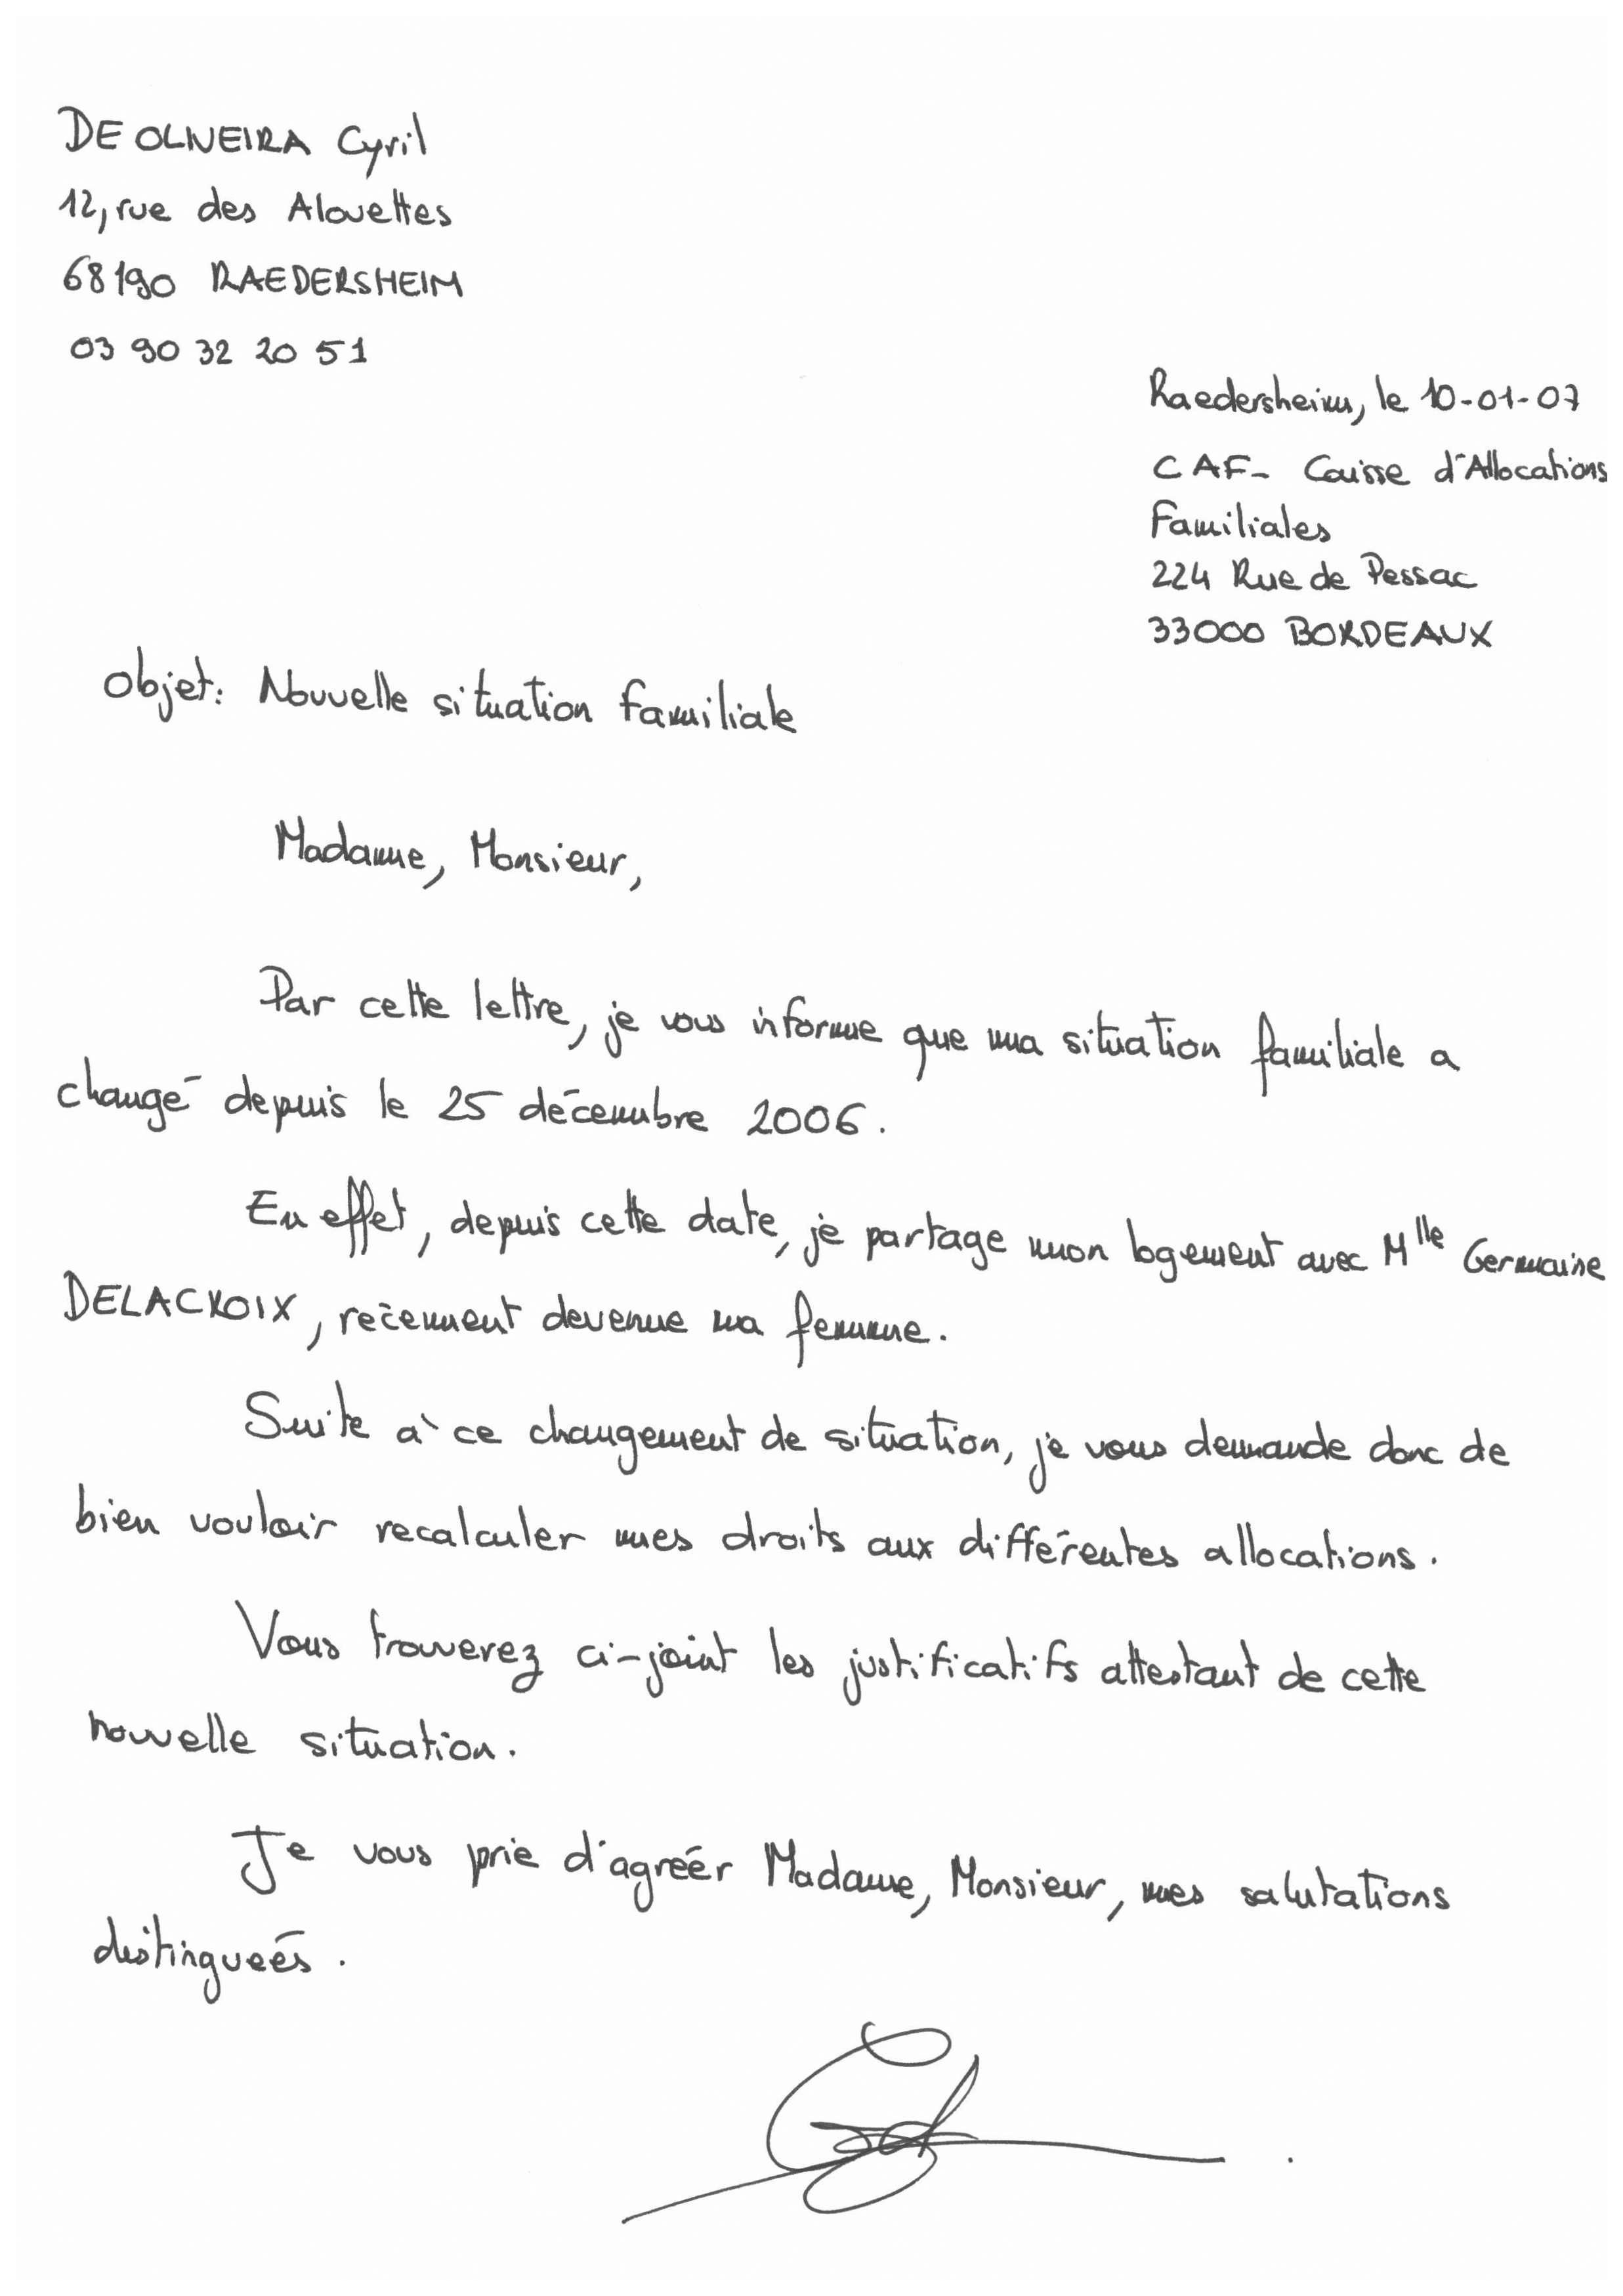 DE OLIVEIRA Cyril
12, rue des Alouettes
68190 RAEDERSHEIM
03 90 32 20 51
Raedersheim, le 10-01-07
CAF - Caisse d'Allocations
Familiales
224 Rue de Pessac
33000 BORDEAUX
objet: Nouvelle situation familiale
Madame, Monsieur,
Par cette lettre, je vous informe que ma situation familiale a
changé depuis le 25 décembre 2006.
En effet, depuis cette date, je partage mon logement avec Mlle Germaine
DELACROIX, récemment devenue ma femme.
Suite à ce changement de situation, je vous demande donc de
bien vouloir recalculer mes droits aux différentes allocations.
Vous trouverez ci-joint les justificatifs attestant de cette
nouvelle situation.
Je vous prie d'agréer Madame, Monsieur, mes salutations
distinguées.